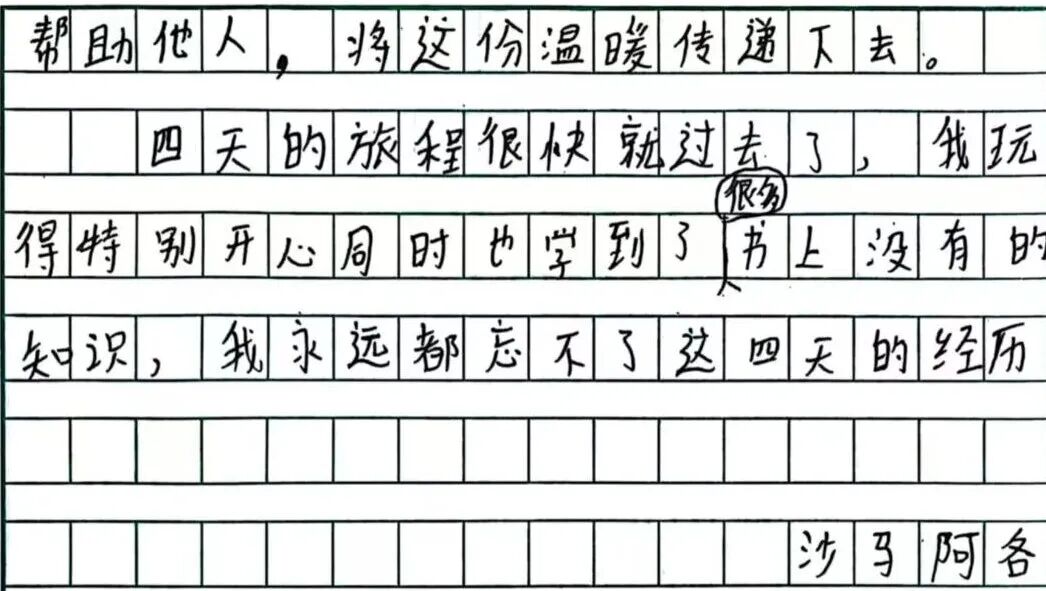 帮助他人，将这份温暖传递下去。
四天的旅程很快就过去了，我玩
得特别开心同时也学到了很多书上没有的
知识，我永远都忘不了这四天的经历
沙马阿各